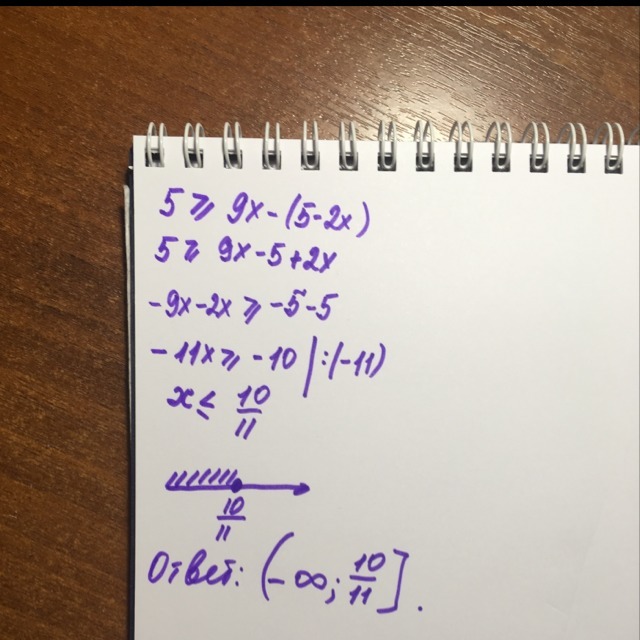 5 ≥ 9x - (5 - 2x)
5 ≥ 9x - 5 + 2x
-9x - 2x ≥ -5 - 5
-11x ≥ -10 | :(-11)
x ≤ 10/11
10/11
Ответ: (-∞; 10/11].